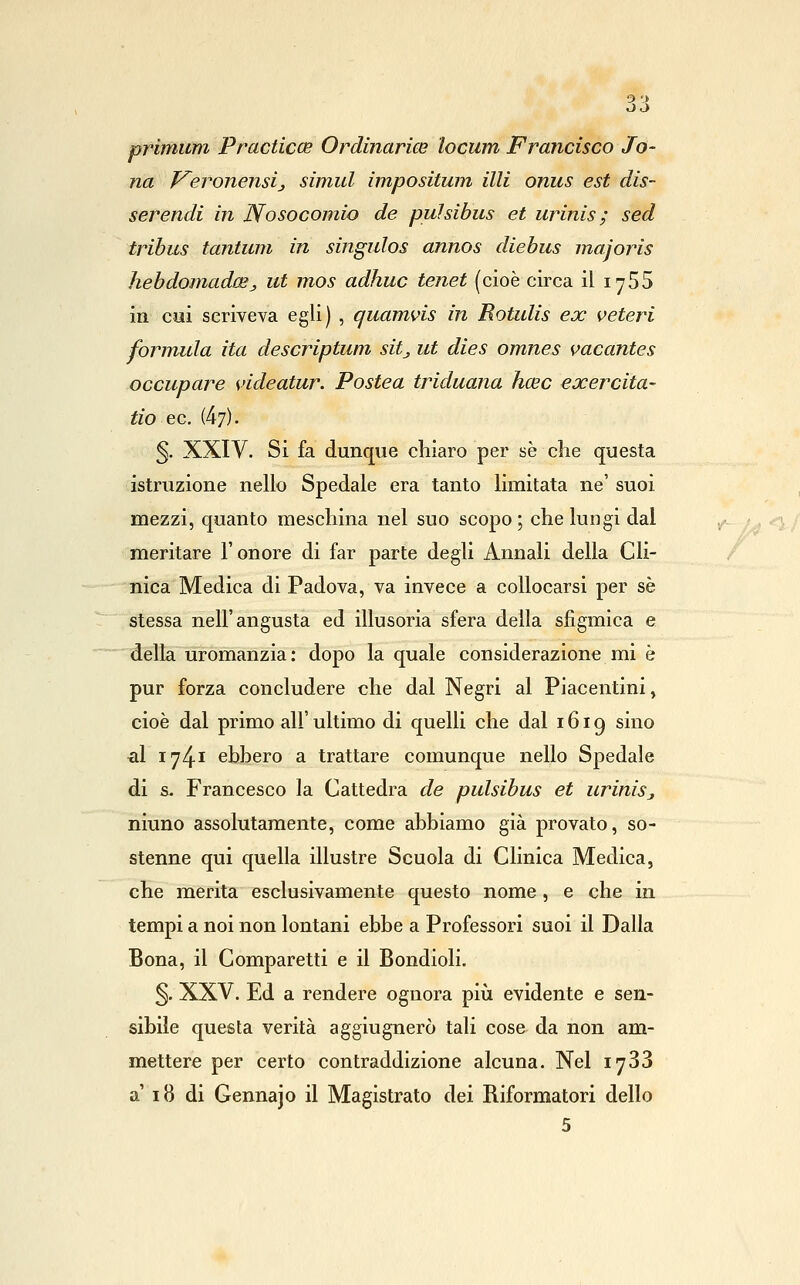 33
primum Practicæ Ordinariæ locum Francisco Jo-
na Veronensi, simul impositum illi onus est dis-
serendi in Nosocomio de pulsibus et urinis; sed
tribus tantum in singulos annos diebus majoris
hebdomadæ, ut mos adhuc tenet (cioè circa il 1755
in cui scriveva egli) , quamvis in Rotulis ex veteri
formula ita descriptum sit, ut dies omnes vacantes
occupare videatur. Postea triduana hæc exercita-
tio ec. (47).
§. XXIV. Si fa dunque chiaro per sè che questa
istruzione nello Spedale era tanto limitata ne' suoi
mezzi, quanto meschina nel suo scopo; che lungi dal
meritare l'onore di far parte degli Annali della Cli-
nica Medica di Padova, va invece a collocarsi per sè
stessa nell'angusta ed illusoria sfera della sfigmica e
della uromanzia: dopo la quale considerazione mi è
pur forza concludere che dal Negri al Piacentini,
cioè dal primo all'ultimo di quelli che dal 1619 sino
al 1741 ebbero a trattare comunque nello Spedale
di s. Francesco la Cattedra de pulsibus et urinis,
niuno assolutamente, come abbiamo già provato, so-
stenne qui quella illustre Scuola di Clinica Medica,
che merita esclusivamente questo nome, e che in
tempi a noi non lontani ebbe a Professori suoi il Dalla
Bona, il Comparetti e il Bondioli.
§. XXV. Ed a rendere ognora più evidente e sen-
sibile questa verità aggiugnerò tali cose da non am-
mettere per certo contraddizione alcuna. Nel 1733
a' 18 di Gennajo il Magistrato dei Riformatori dello
5